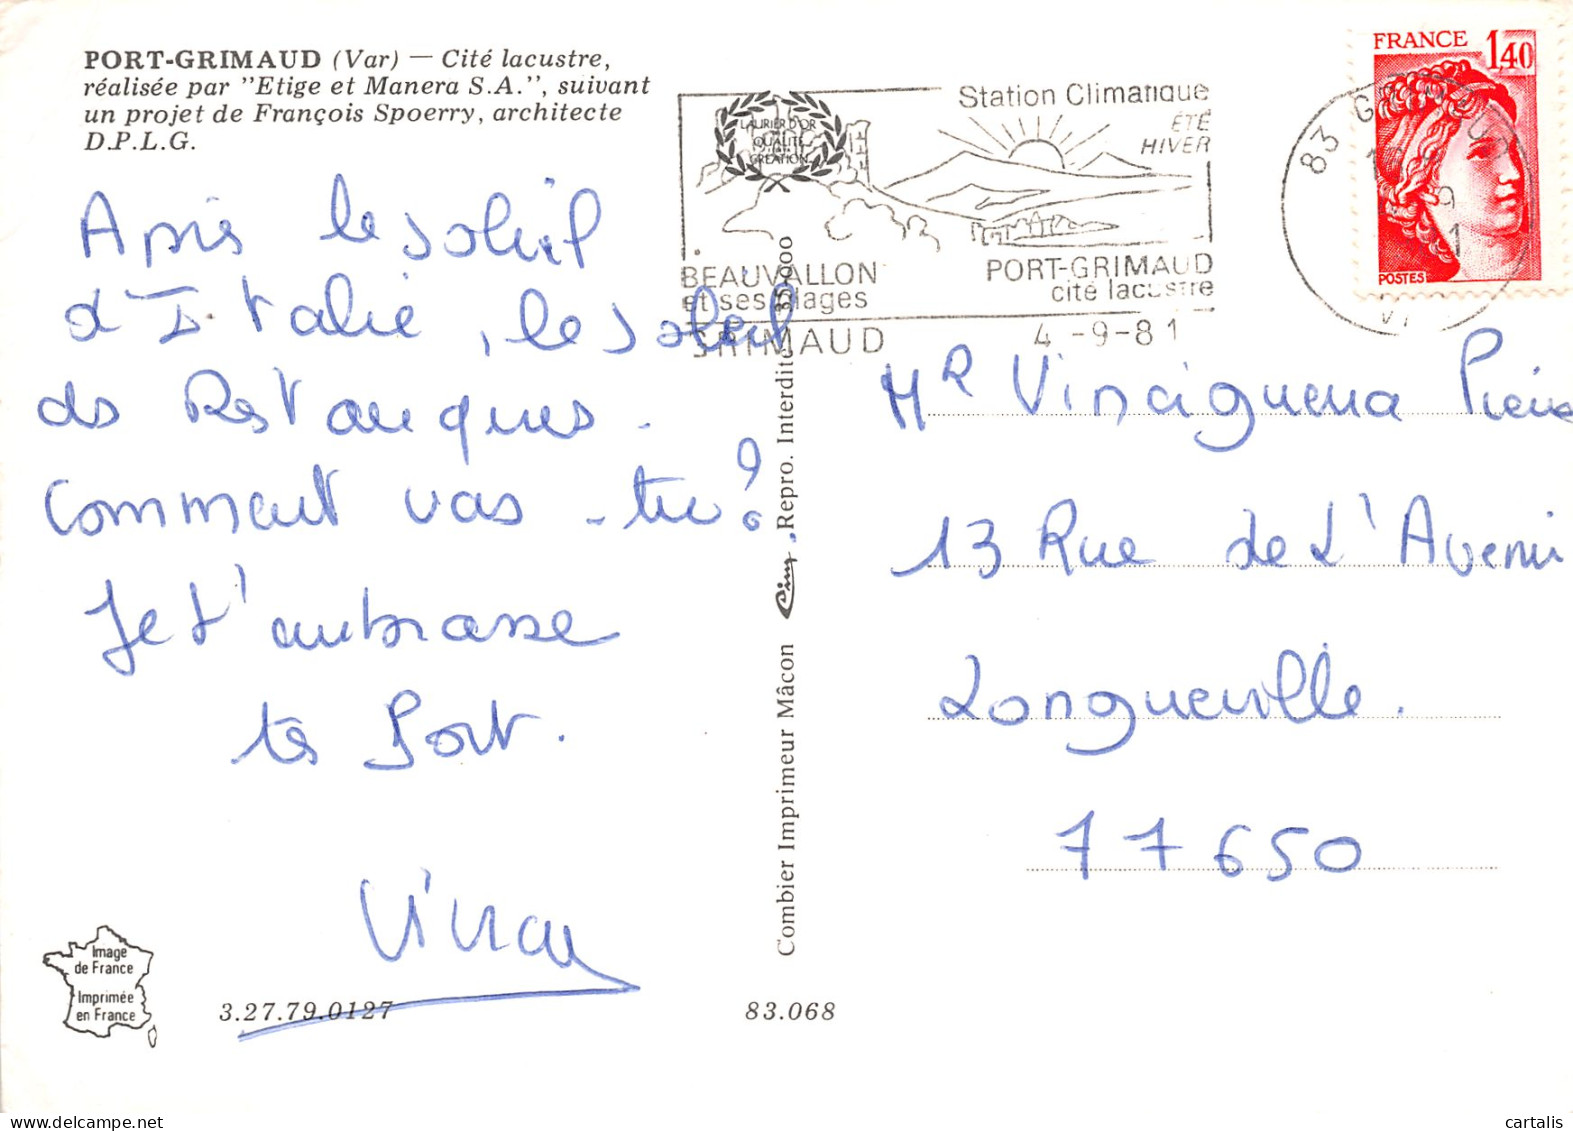 PORT-GRIMAUD (Var) — Cité lacustre,
réalisée par "Etige et Manera S.A.", suivant
un projet de François Spoerry, architecte
D.P.L.G.
Après le soleil
d'Italie, le soleil
des Restanques.
Comment vas-tu?
Je t'embrasse
très fort.
3.27.79.0127
Image
de France
Imprimée
en France
83.068
Combier Imprimeur Mâcon Cim Repro. Interdite
LAURIER D'OR
QUALITÉ
CRÉATION
Station Climatique
ÉTÉ
HIVER
BEAUVALLON
et ses plages
PORT-GRIMAUD
cité lacustre
GRIMAUD
4-9-81
FRANCE 1,40
POSTES
83
Mr Vinciguerra
13 Rue de L'Avenir
Longueville.
77650
cartalis